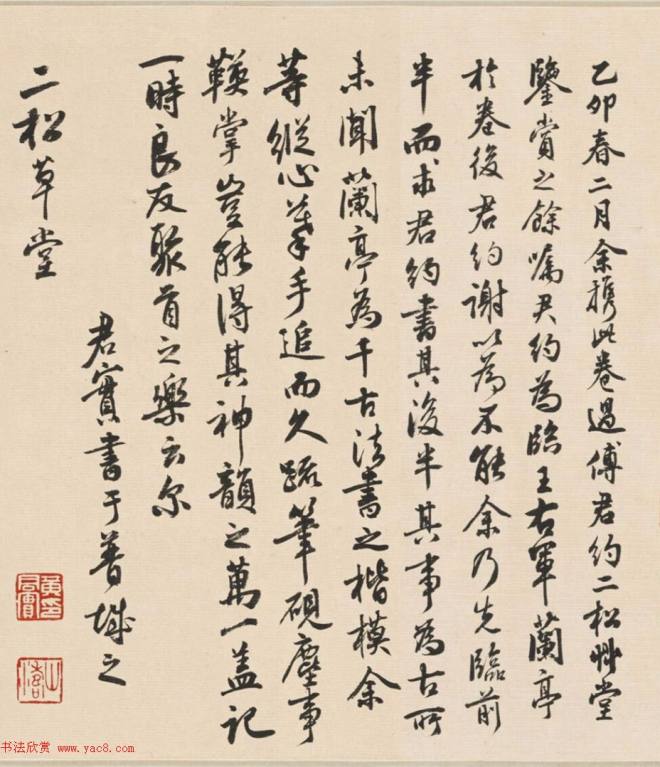 乙卯春二月余携此卷過傅君約二松艸堂
鑒賞之餘嘱君約為臨王右軍蘭亭
於卷後君約謝以為不能余乃先臨前
半而求君約書其後半其事為古所
未聞蘭亭為千古法書之楷模余
等縱心摹手追而久疏筆硯塵事
鞅掌豈能得其神韻之萬一盖記
一時良友聚首之樂云尔
君實書于普城之
二松草堂
黄君實印
書法欣赏 www.yac8.com